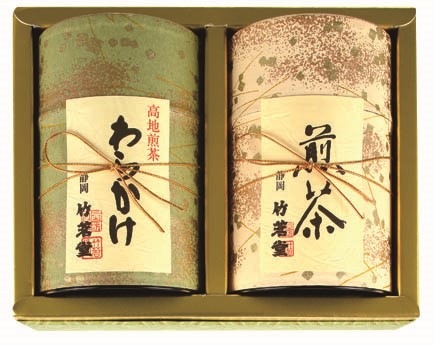 高地煎茶
わらかけ
静岡 竹茗堂
煎茶
静岡 竹茗堂